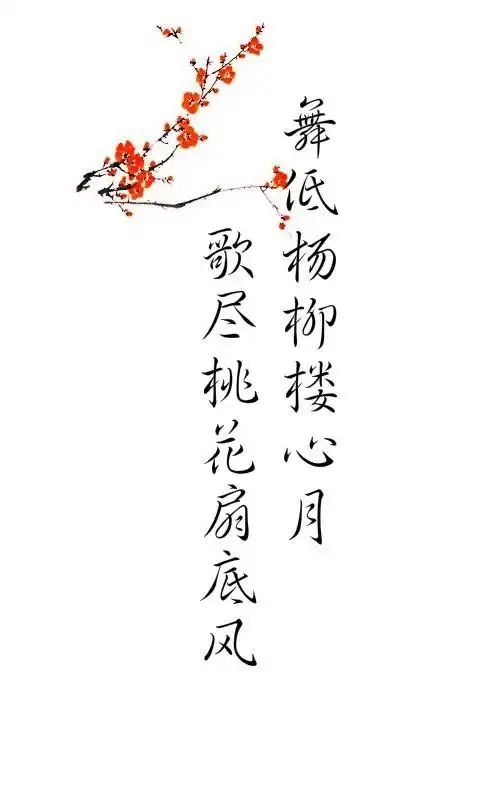 舞低杨柳楼心月
歌尽桃花扇底风